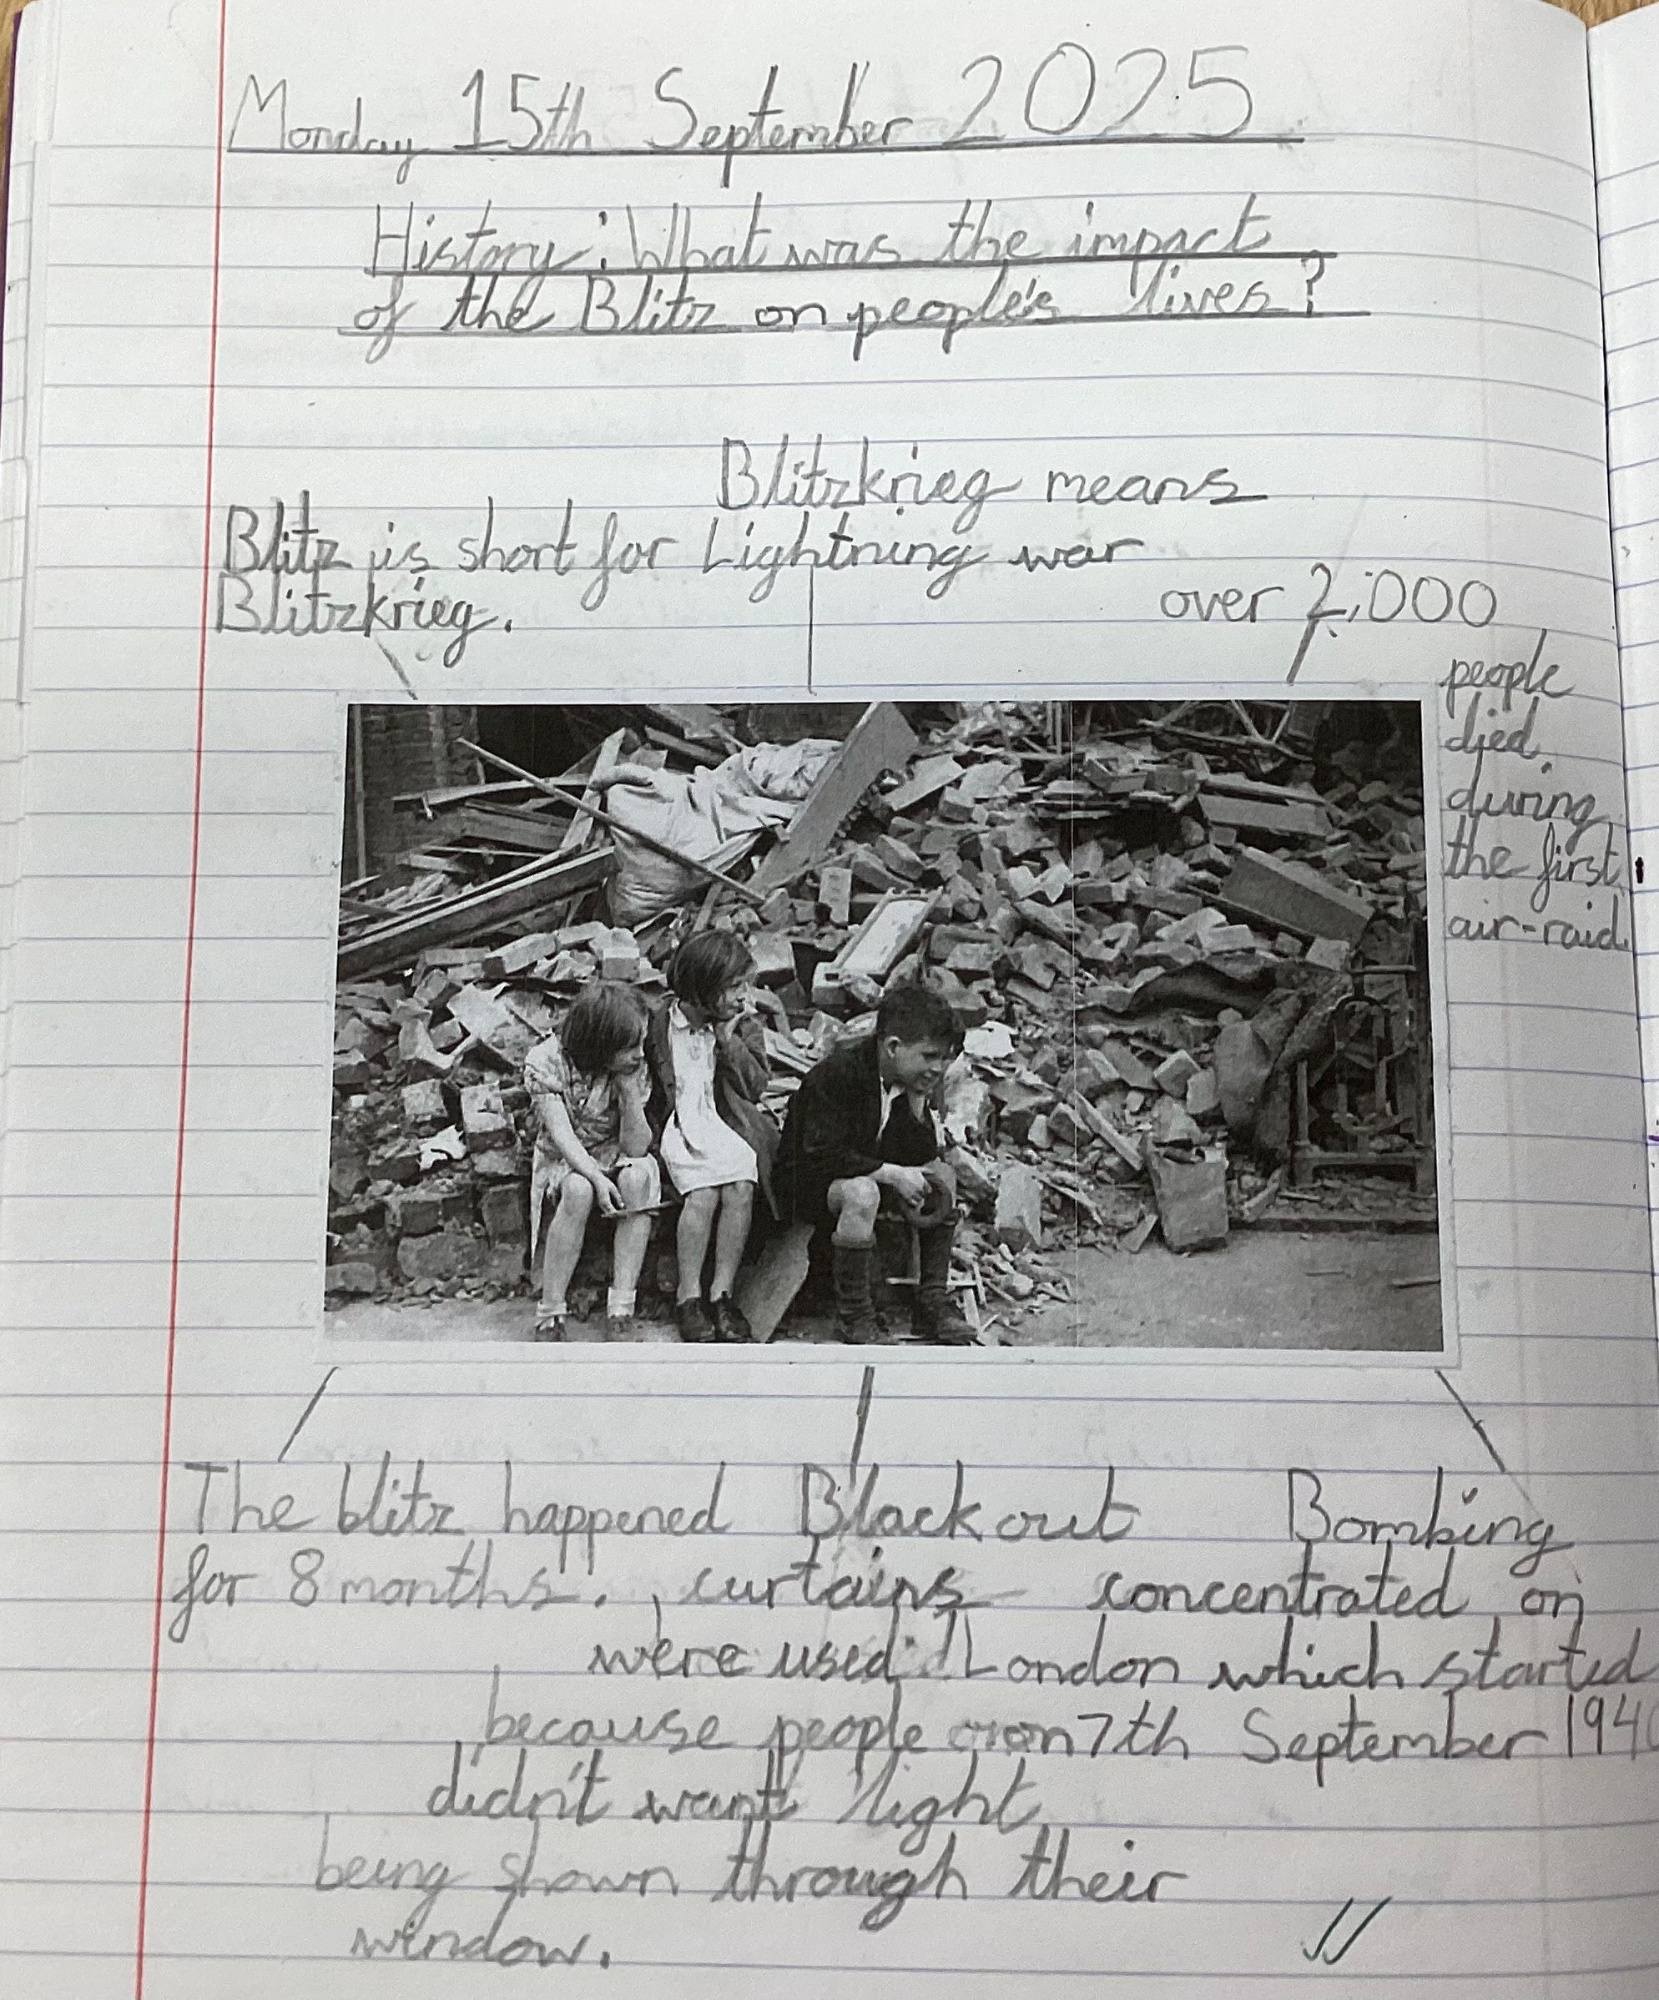 Monday 15th September 2025
History: What was the impact
of the Blitz on people's lives?
Blitz is short for
Blitzkrieg.
Blitzkrieg means
Lightning war
over 2,000
people
died
during
the first
air-raid.
The blitz happened
for 8 months.
Blackout
curtains
were used
because people
didn't want light
being shown through their
window.
Bombing
concentrated on
London which started
on 7th September 1940